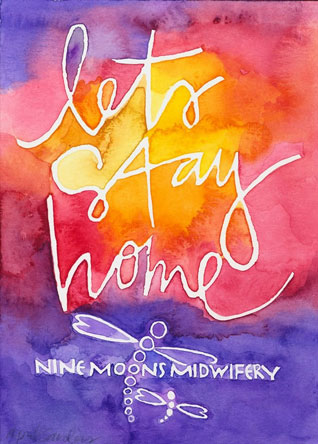 lets
stay
home
NINE MOONS MIDWIFERY